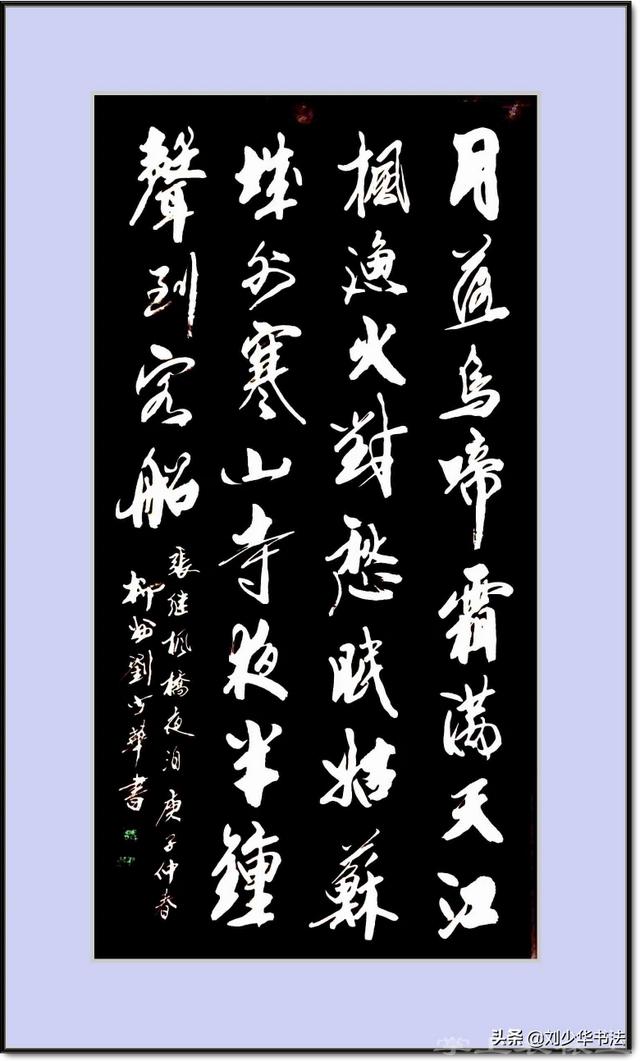 月落烏啼霜满天江
楓漁火對愁眠姑蘇
城外寒山寺夜半鍾
聲到客船
張继楓橋夜泊庚子仲春
柳州劉少華書
头条 @刘少华书法